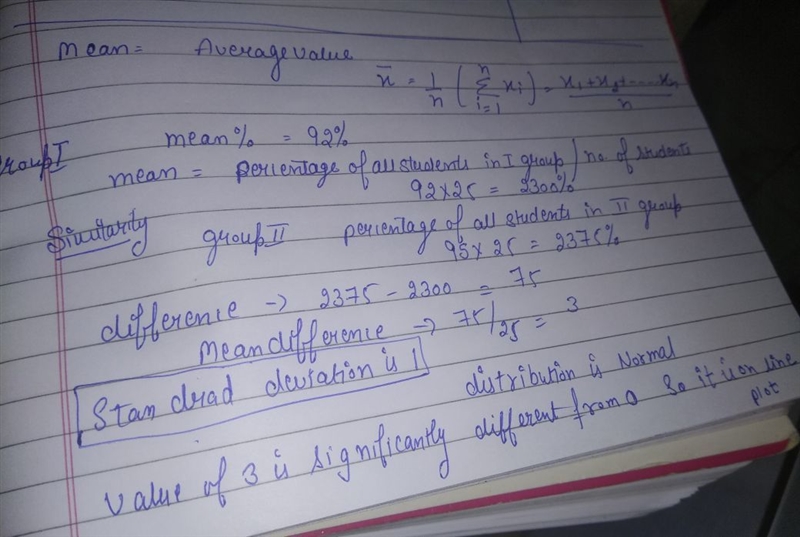 Mean = Average value
x̄ = 1/n ( n Σ i=1 xi ) = x1 + x2 + ---- xn / n
mean% = 92%
Group I mean = percentage of all students in I group / no. of students
92 x 25 = 2300%
Similarity group II percentage of all students in II group
95 x 25 = 2375%
difference → 2375 - 2300 = 75
Mean difference → 75/25 = 3
Standrad deviation is 1
distribution is Normal
Value of 3 is significantly different from 0 So it is on line
plot